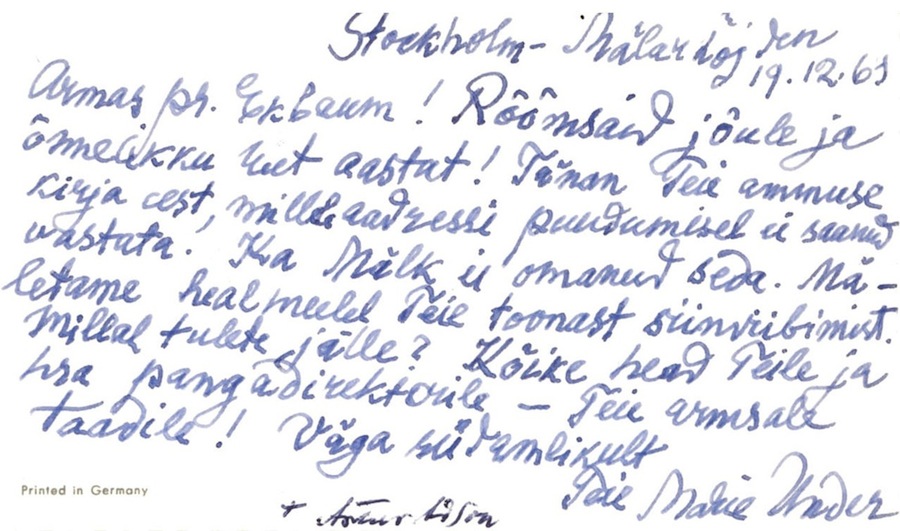 Stockholm - Mälarhöjden
19.12.63
Armas pr. Ekbaum! Rõõmsaid jõule ja
õnnelikku uut aastat! Tänan Teie ammuse
kirja eest, mille aadressi puudumisel ei saanud
vastata. Ka Mälk ei omanud seda. Mä-
letame heal meelel Teie toonast siinviibimist.
Millal tulete jälle? Kõike head Teile ja
hra pangadirektorile — Teie armsale
taadile! Väga südamlikult
Teie Marie Under
+ Artur Adson
Printed in Germany